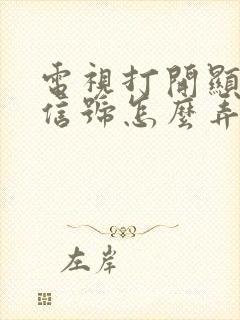 電視打開顯
信號怎麼弄
左岸